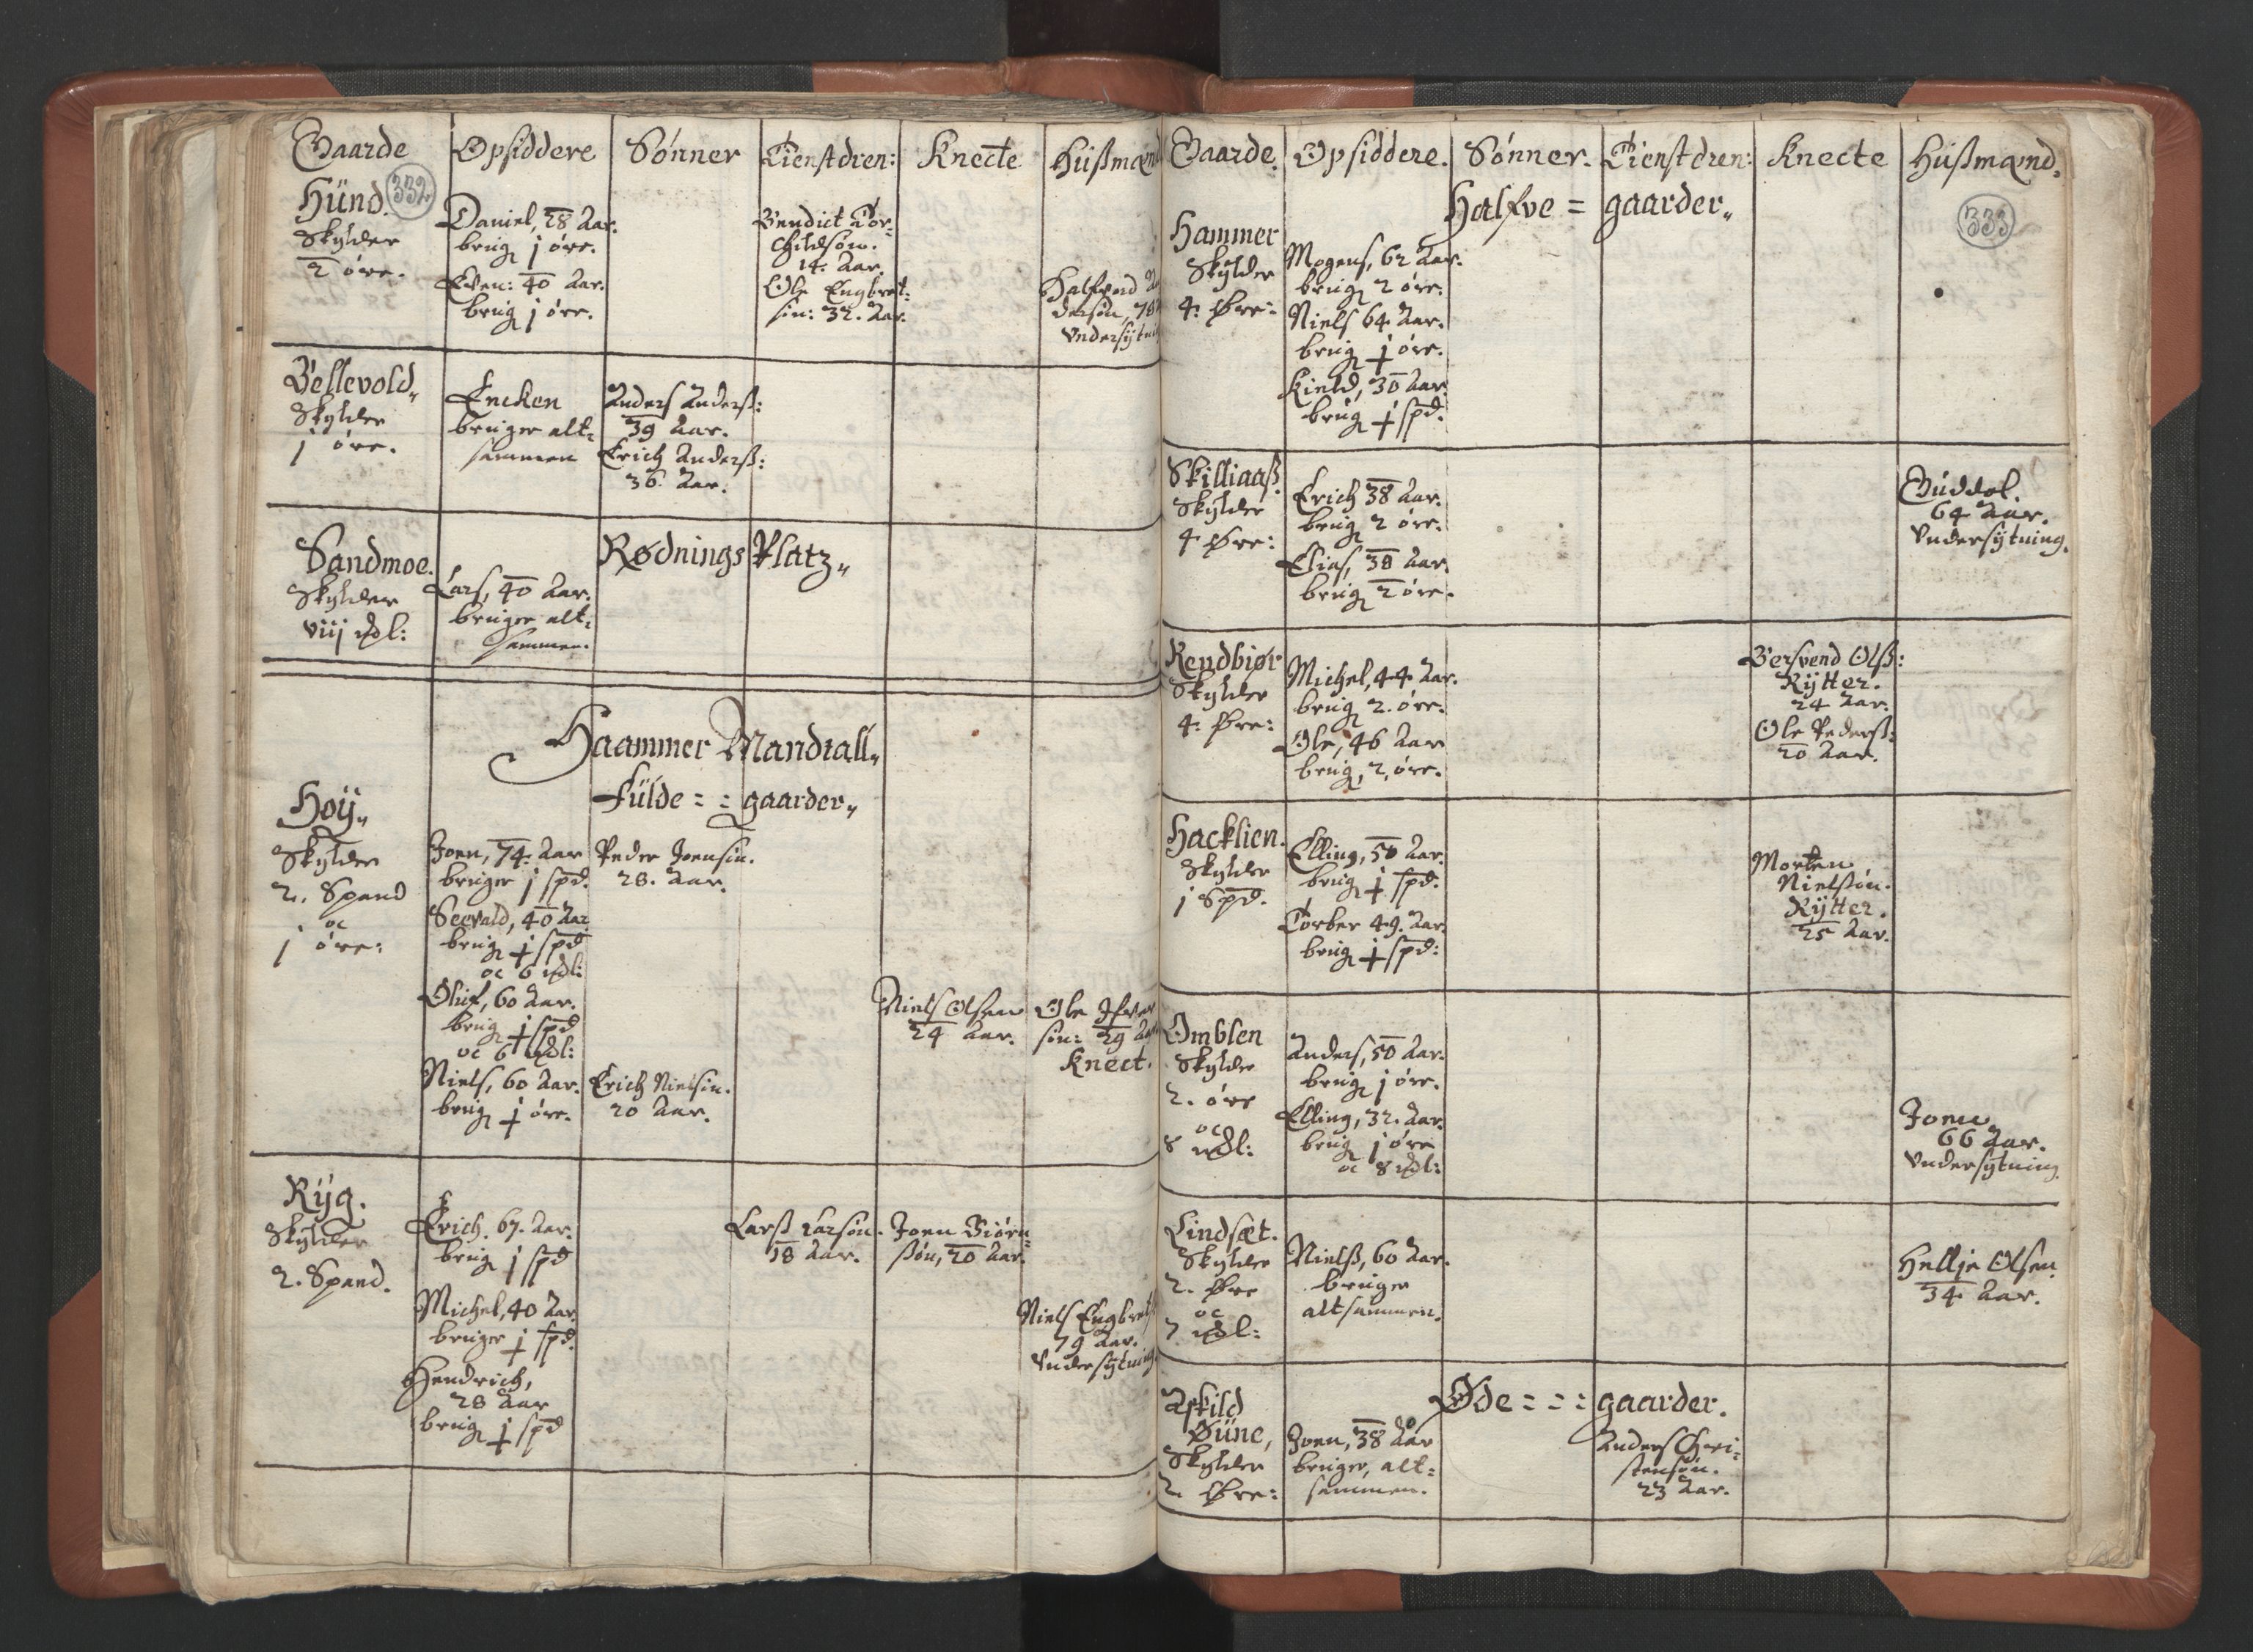 Gaarde Opsiddere Sønner Tienstdren: Knecte Hüßmænd
332
Hünd.
Skylder
2 øre.
Daniel, 28 Aar.
brüg j øre.
Even: 40 Aar.
brüg j øre.
Bendict Tor=
childsøn.
14. Aar.
Ole Engbret=
søn: 32. Aar.
Halfvord
dersøn, 78
Vndersÿtni
Bellevold„
Skylder
j øre.
Encken
brüger alt=
sammen
Anders Anderß:
39 Aar.
Erich Anderß:
36. Aar.
Rødnings Platz„
Sandmoe.
Skylder
viij mdl:
Lars, 40 Aar.
brüger alt=
sammen.
Haammer Mandtall„
Fülde = = gaarder„
Hoÿ„
Skylder
2. Spand
oc
j øre:
Joen, 74. Aar
brüger j spd.
Seevald, 40 Aar
brüg ɉ spd
oc 6 mdl:
Olüf, 60 Aar.
brüg ɉ spd
oc 6 mdl:
Niels, 60 Aar.
brüg ɉ øre.
Peder Joensøn.
28. Aar.
Erich Nielsøn.
20 Aar.
Niels Olsen
24 Aar.
Ole Ifver
søn: 29 Aar
Knect.
Rÿg.
Skylder
2. Spand.
Erich. 67. Aar.
brüg j spd
Michel, 40 Aar
brüger ɉ spd.
Hendrich,
28 Aar
brüg ɉ spd
Larß Larsøn.
18 Aar.
Joen Biørn=
ßøn, 20 Aar.
Niels Engbret
79 Aar.
Vndersÿtning
Gaarde. Opsiddere. Sønner. Tienstdren: Knecte Hüßmænd.
333
Halfve = gaarder„
Hammer
Skylder
4. Øre:
Mogens, 62 Aar.
brüg 2 øre.
Niels 64 Aar.
brüg ɉ øre.
Kield, 30 Aar.
brüg ɉ spd.
Skilliaaß.
Skylder
4 Øre:
Erich 38 Aar.
brüg 2 øre.
Elias, 38 Aar.
brüg 2 øre.
Güddol.
64 Aar.
Vndersÿtning.
Rendbiør
Skylder
4. Øre:
Michel, 44 Aar.
brüg 2. øre.
Ole, 46 Aar
brüg, 2, øre.
Bersvend Olß:
Rÿtter.
24 Aar.
Ole Pederß:
20 Aar.
Hacklien.
Skylder
j Spd.
Elling, 50 Aar.
brüg ɉ spd.
Torber 49. Aar.
brüg ɉ spd:
Morten
Nielsøn.
Rÿtter.
25 Aar.
Omblen
Skylder
2. øre
oc
8 mdl:
Anders, 50 Aar.
brüg j øre.
Elling, 32. Aar.
brüg j øre
oc 8 mdl:
Jone
66 Aar.
Vndersÿtning
Lindsæt.
Skylder
2. Øre
oc
7 mdl:
Nielß, 60 Aar.
brüger
altsammen.
Hellje Olsen.
34 Aar.
Øde = = = gaarder.
Askild
Øüne,
Skylder
2. Øre:
Joen, 38 Aar
brüger, alt=
sammen.
Anders Chri=
stensøn.
23 Aar.